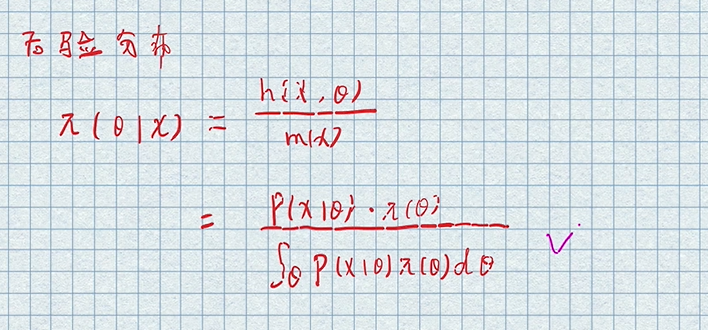 后验分布
π(θ|x) = h(x,θ) / m(x)
= P(x|θ)·π(θ) / ∫θ P(x|θ)π(θ)dθ